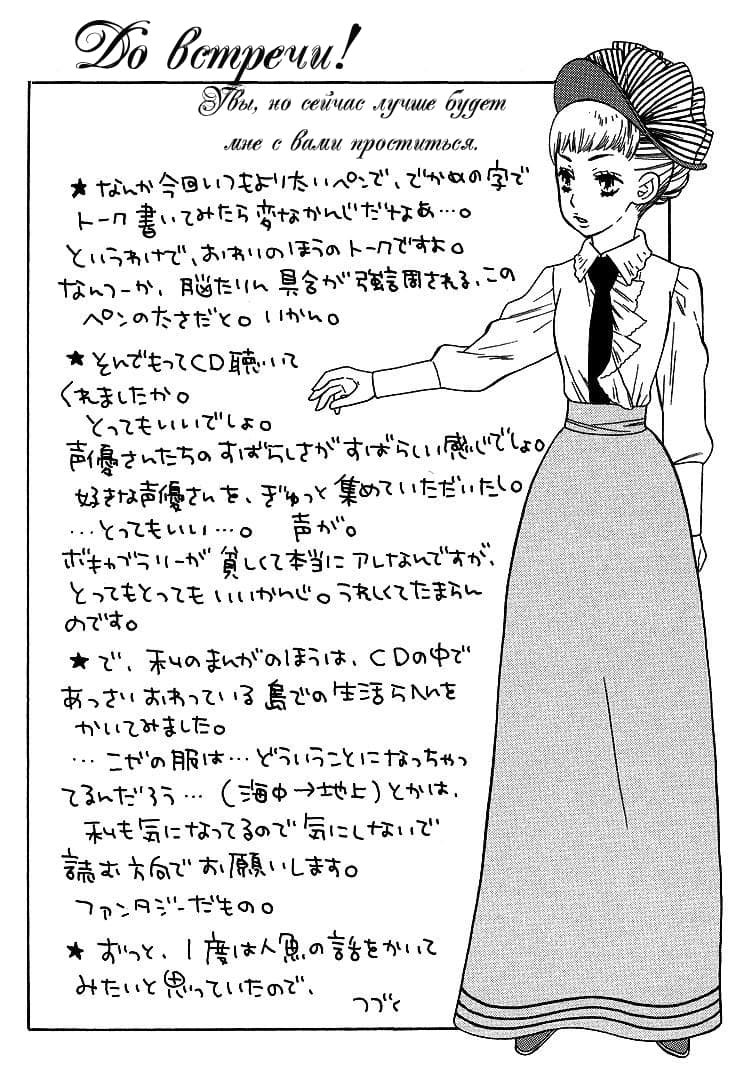 До встречи!
Увы, но сейчас лучше будет
мне с вами проститься.
★なんか今回いつもより太いペンで、でかめの字で
トーク書いてみたら変なかんじだねぇ…。
というわけで、おわりのほうのトークですよ。
なんつーか、脳たりん具合が強調される、この
ペンの太さだと。いかん。
★そんでもってCD聴いて
くれましたか。
とってもいいでしょ。
声優さんたちのすばらしさがすばらしい感じでしょ。
好きな声優さんを、ぎゅっと集めていただいたし。
…とってもいい…。声が。
ボキャブラリーが貧しくて本当にアレなんですが、
とってもとってもいいかんじ。うれしくてたまらん
のです。
★で、私のまんがのほうは、CDの中で
あっさりおわっている島での生活らへんを
かいてみました。
…こずの服は…どういうことになっちゃっ
てるんだろう…(海中→地上)とかは、
私も気になってるので気にしないで
読む方向でお願いします。
ファンタジーだもの。
★ずっと、1度は人魚の話をかいて
みたいと思っていたので、
つづく